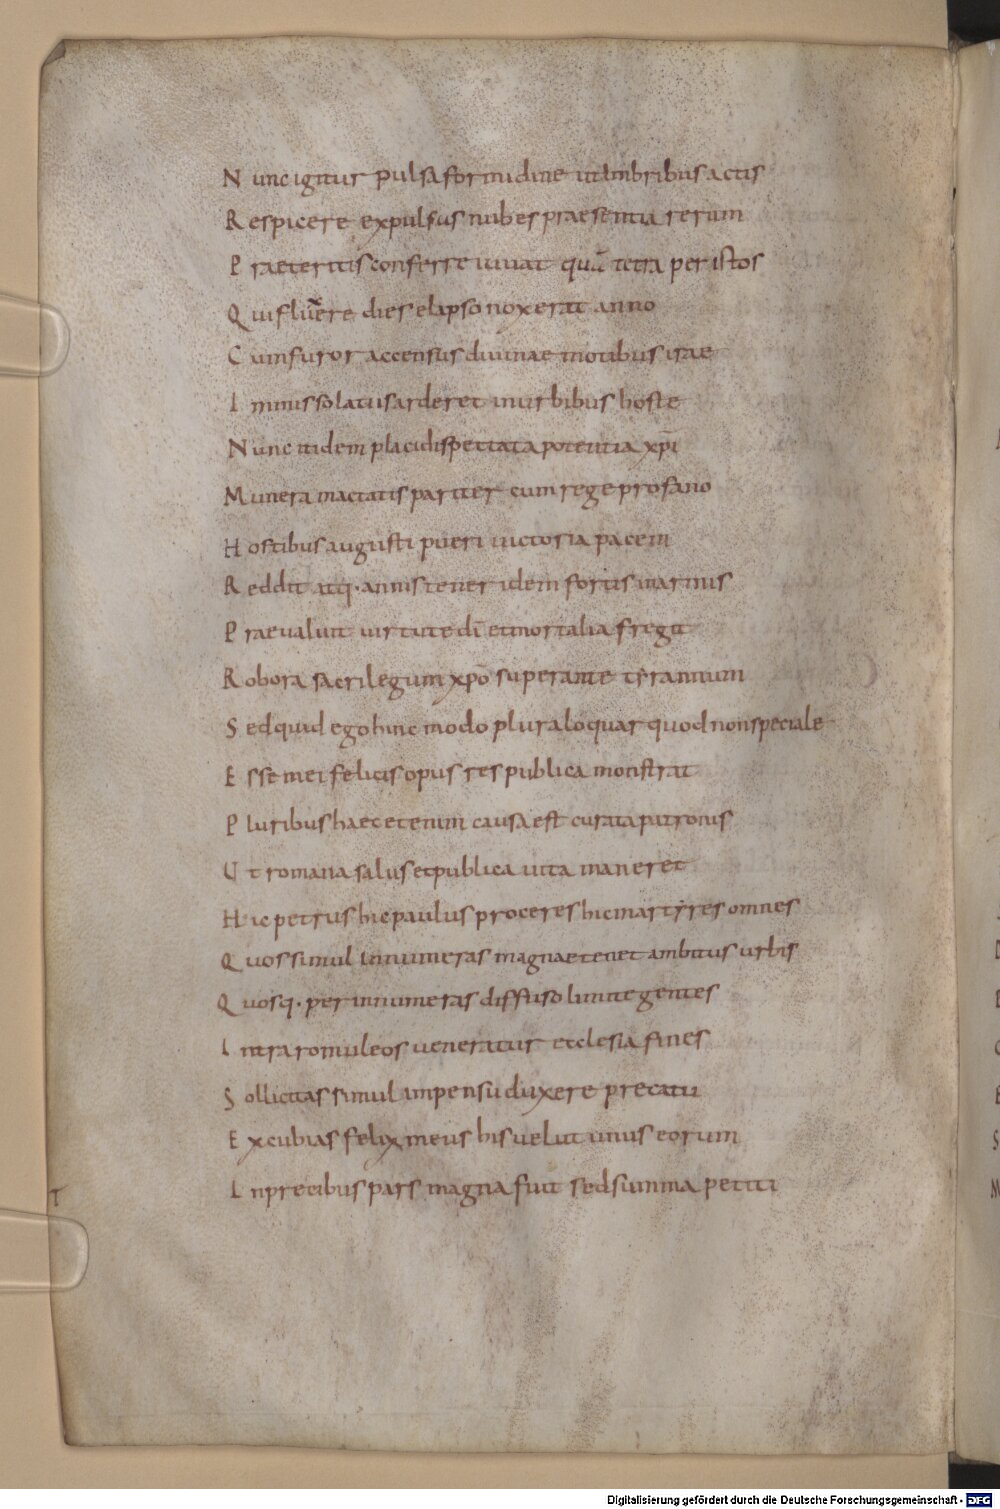 Nunc igitur pulsa formidine ut imbribus actis
Respicere expulsus nubes praesentia rerum
Praeteritis conferre iuuat quā tetra per istos
Qui fluxere dies elapso nox erat anno
Cum furor accensus diuinae motibus irae
Inmisso latiis arderet in urbibus hoste
Nunc itidem placidi spectata potentia xp̄i
Munera mactatis pariter cum rege profano
Hostibus augusti pueri uictoria pacem
Reddit atq· annis tener idem fortis in armis
Praeualuit uirtute dī et mortalia fregit
Robora sacrilegum xp̄o superante tẏrannum
Sed quid ego hinc modo plura loquar quod non speciale
Esse mei felicis opus res publica monstrat
Pluribus haec etenim causa est curata patronis
Ut romana salus et publica uita maneret
Hic petrus hic paulus proceres hic martẏres omnes
Quos simul innumeras magnae tenet ambitus urbis
Quosq· per innumeras diffuso limite gentes
Intra romuleos ueneratur ecclesia fines
Sollicitas simul impensu duxere precatu
Excubias felix meus his uelut unus eorum
In precibus pars magna fuit sed summa petiti
T
Digitalisierung gefördert durch die Deutsche Forschungsgemeinschaft - DFG